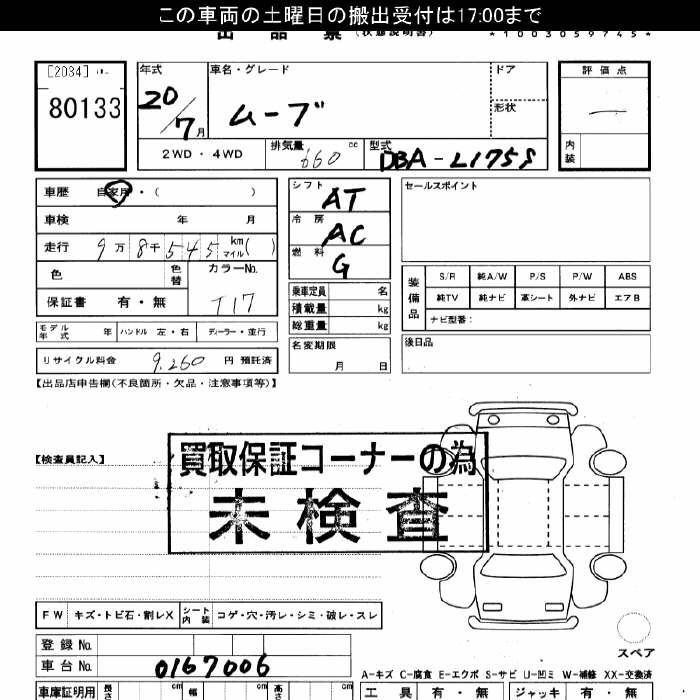 この車両の土曜日の搬出受付は17:00まで
出品票 (状態説明書) *1003059745*
[2034]
80133
年式 20/7月
車名・グレード ムーブ
ドア
形状
評価点
内装
2WD・4WD 排気量 660 cc 型式 DBA-L175S
車歴 自家用・( )
車検 年 月
走行 9万8千545 km マイル( )
色 色替 カラーNo. T17
保証書 有・無
モデル年式 年 ハンドル 左・右 ディーラー・並行
リサイクル料金 9,260 円 預託済
シフト AT
冷房 AC
燃料 G
乗車定員 名
積載量 kg
総重量 kg
名変期限 月 日
セールスポイント
装備品 S/R 純A/W P/S P/W ABS
純TV 純ナビ 革シート 外ナビ エアB
ナビ型番:
後日品
【出品店申告欄(不良箇所・欠品・注意事項等)】
【検査員記入】
買取保証コーナーの為
未検査
FW キズ・トビ石・割レX シート内装 コゲ・穴・汚レ・シミ・破レ・スレ
登録No.
車台No. 0167006
スペア
A-キズ C-腐食 E-エクボ S-サビ U-凹ミ W-補修 XX-交換済
車庫証明用 長さ cm 幅 cm 高さ cm
工具 有・無 ジャッキ 有・無